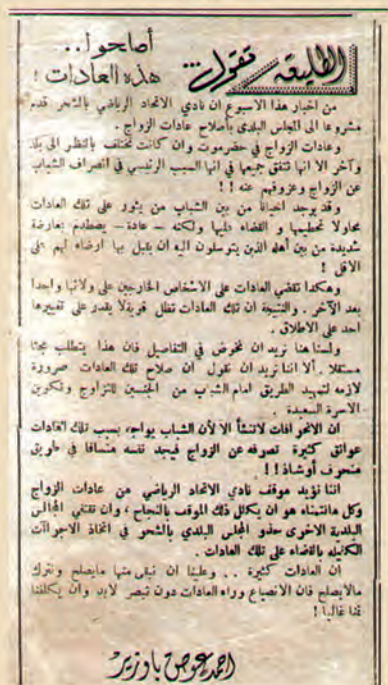 الطليعة تقول...
أصلحوا..
هذه العادات !
من اخبار هذا الاسبوع ان نادي الاتحاد الرياضي بالشحر قدم
مشروعا الى المجلس البلدى بأصلاح عادات الزواج .
وعادات الزواج في حضرموت وان كانت تختلف بالنظر الى بلد
وآخر الا انها تتفق جميعها في انها السبب الرئيسي في انصراف الشباب
عن الزواج وعزوفهم عنه !!
وقد يوجد احيانا من بين الشباب من يثور على تلك العادات
محاولا تحطيمها و القضاء عليها ولكنه – عادة – يصطدم بعارضة
شديدة من بين أهله الذين يتوسلون اليه ان يقبل بها ارضاء لهم على
الاقل !
وهكذا تقضي العادات على الاشخاص الخارجين على ولائها واحدا
بعد الآخر . والنتيجة ان تلك العادات تظل قوية لا يقدر على تغييرها
احد على الاطلاق .
ولسنا هنا نريد ان نخوض في التفاصيل فان هذا يتطلب بحثا
مستقلا . ألا اننا نريد ان نقول ان صلاح تلك العادات ضرورة
لازمه لتمهيد الطريق امام الشباب من الجنسين للتزاوج وتكوين
الاسرة السعيدة .
ان الانحرافات لا تنشأ الا لأن الشباب يواجه بسبب تلك العادات
عوائق كثيرة تصرفه عن الزواج فيجد نفسه منساقا في طريق
منحرف أو شاذ !!
اننا نؤيد موقف نادي الاتحاد الرياضي من عادات الزواج
وكل ماتتمناه هو ان يكلل ذلك الموقف بالنجاح ، وان تقتفي المجالس
البلدية الاخرى حذو المجلس البلدي بالشحر في اتخاذ الاجراآت
الكفيله بالقضاء على تلك العادات .
ان العادات كثيرة .. وعلينا ان نبقى منها مايصلح ونترك
مالايصلح فان الانصياع وراء العادات دون تبصر لابد وان يكلفنا
ثمنا غاليا !
احمد عوض باوزير